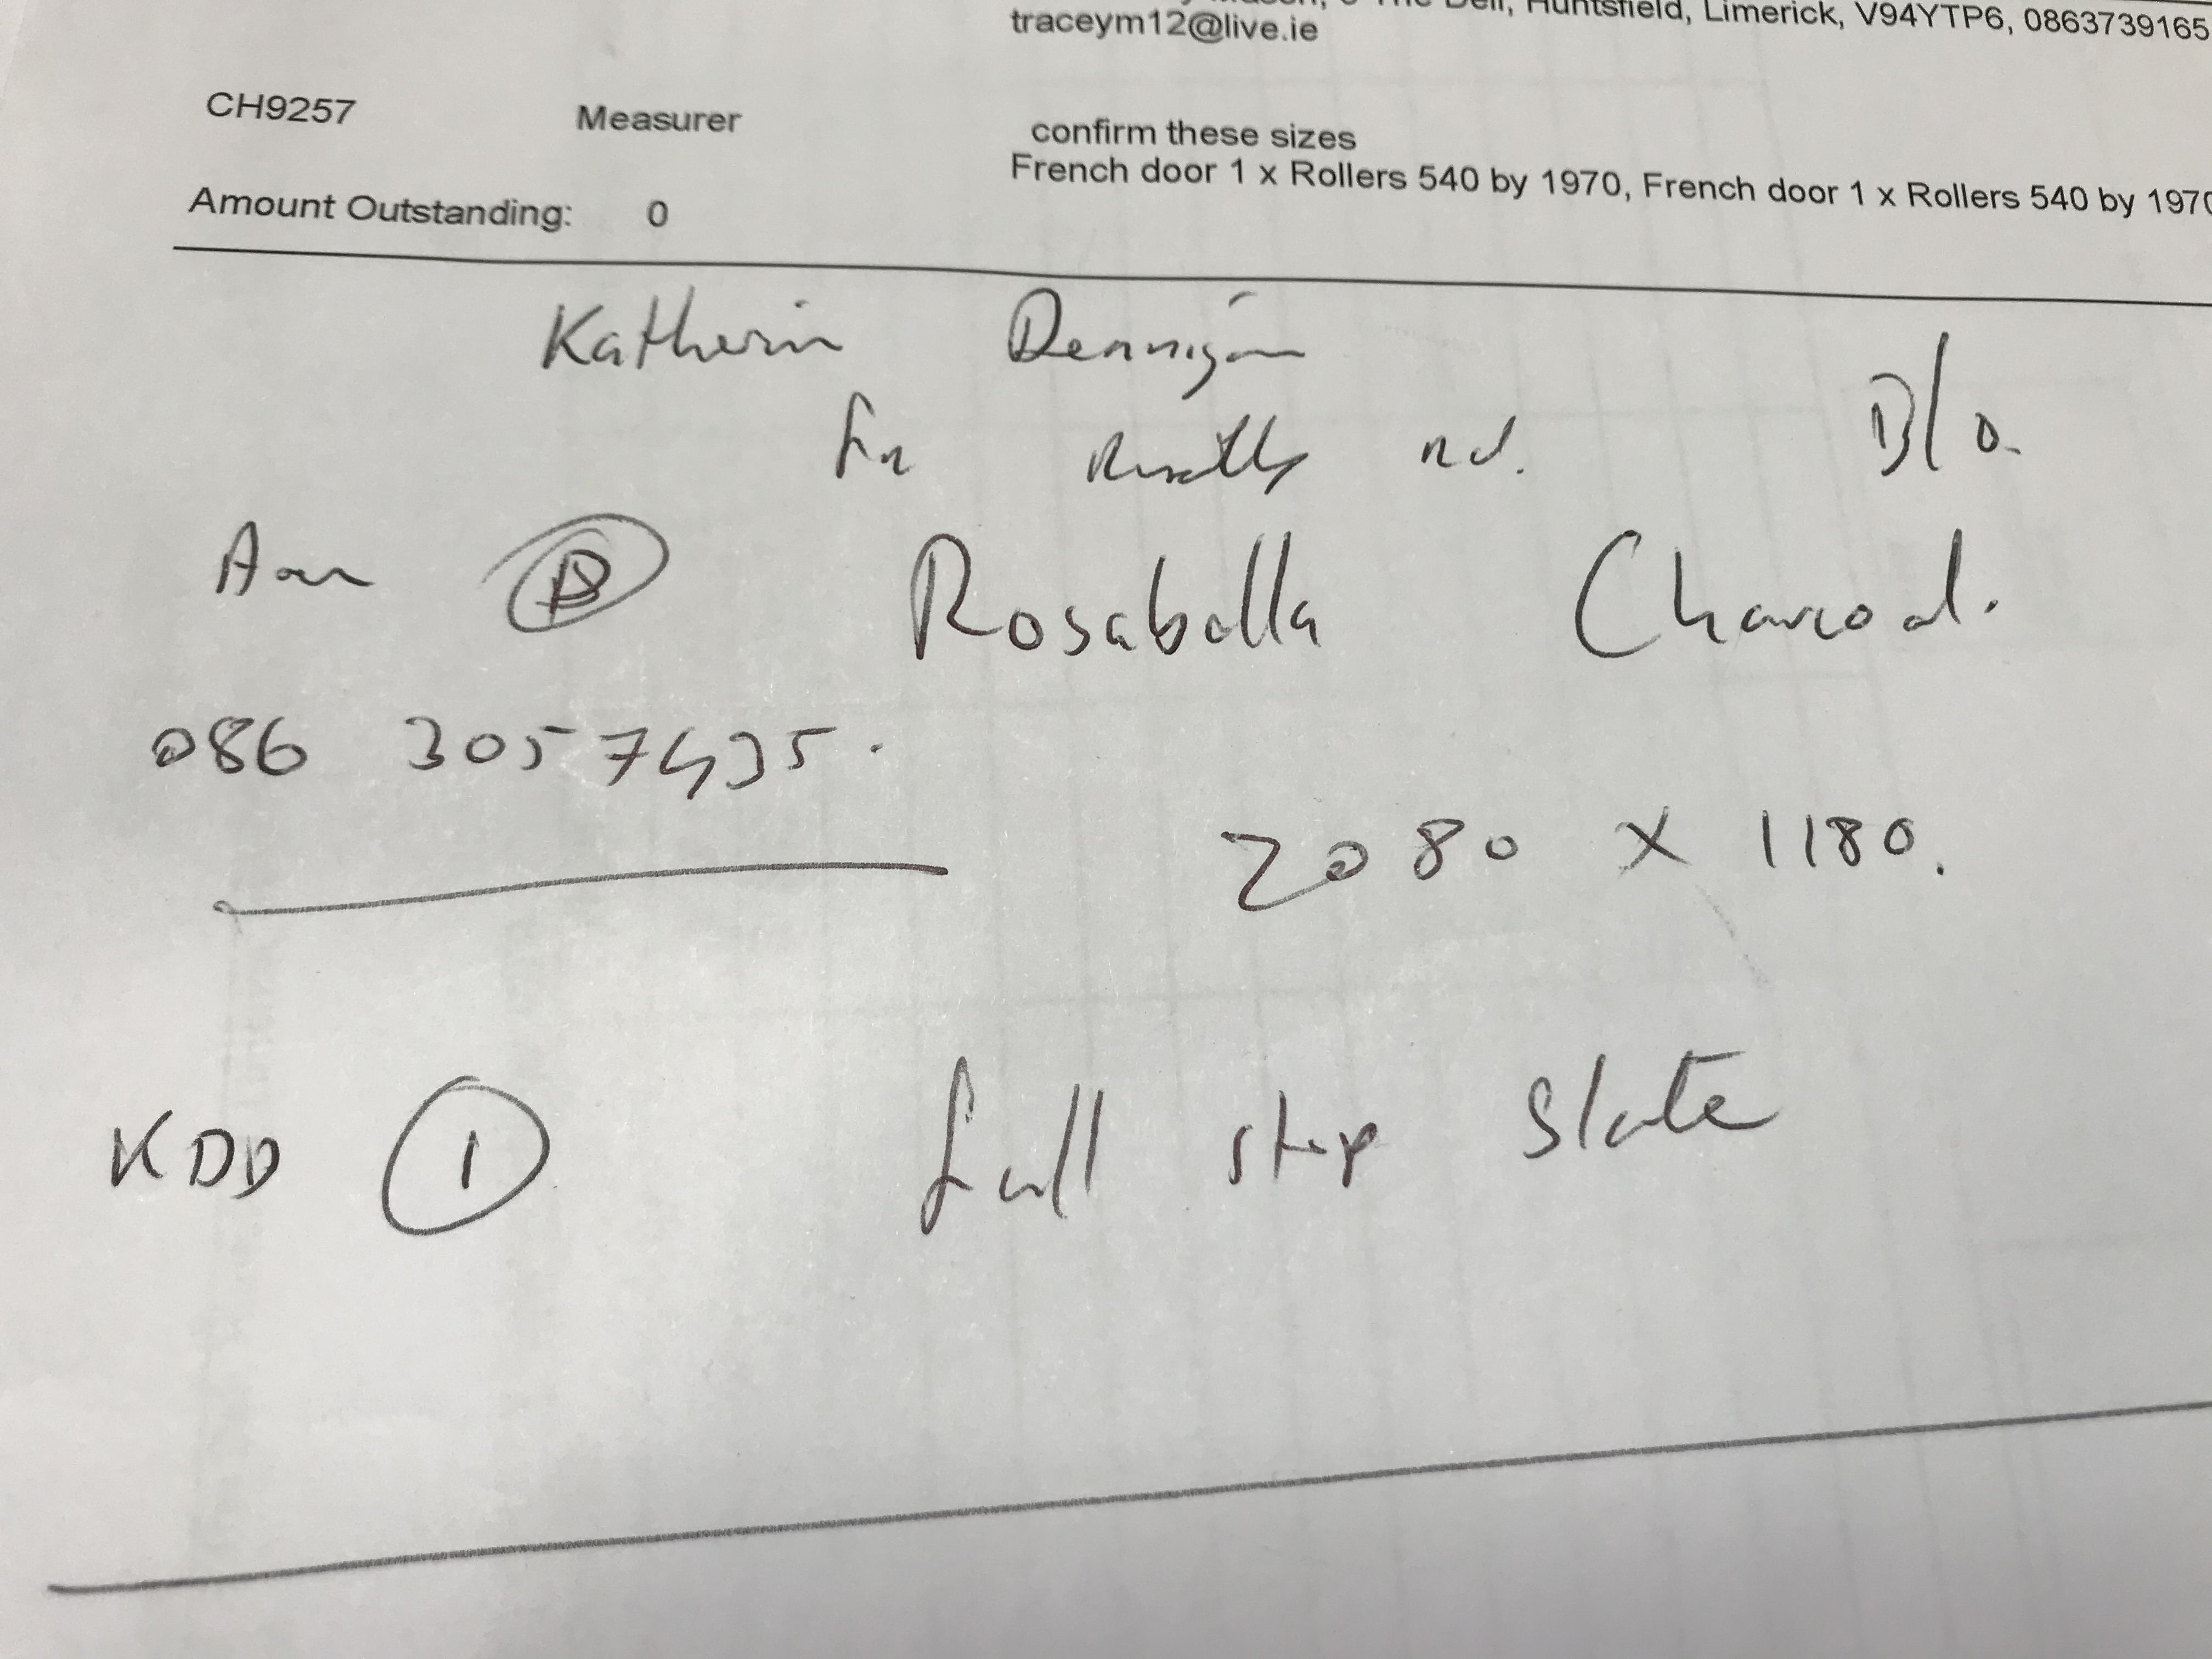 The Dell, Huntsfield, Limerick, V94YTP6, 0863739165
traceym12@live.ie
CH9257 Measurer confirm these sizes
French door 1 x Rollers 540 by 1970, French door 1 x Rollers 540 by 1970
Amount Outstanding: 0
Katherin Dennigan
rd. B/o.
Ann B Rosabella Charcoal.
086 3057435.
2080 x 1180.
KDD 1 full stop slate